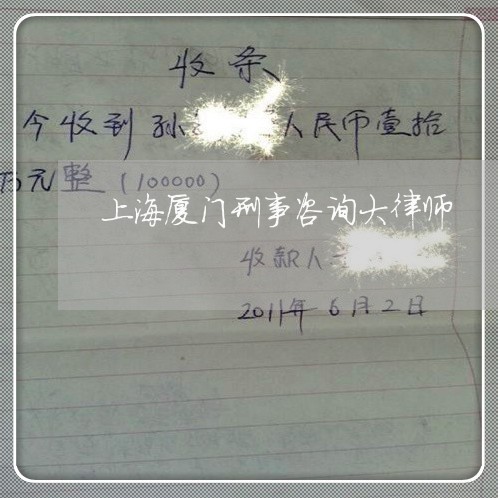 收条
今收到孙 人民币壹拾
万元整(100000)
上海厦门刑事咨询大律师
收款人
2011年6月2日